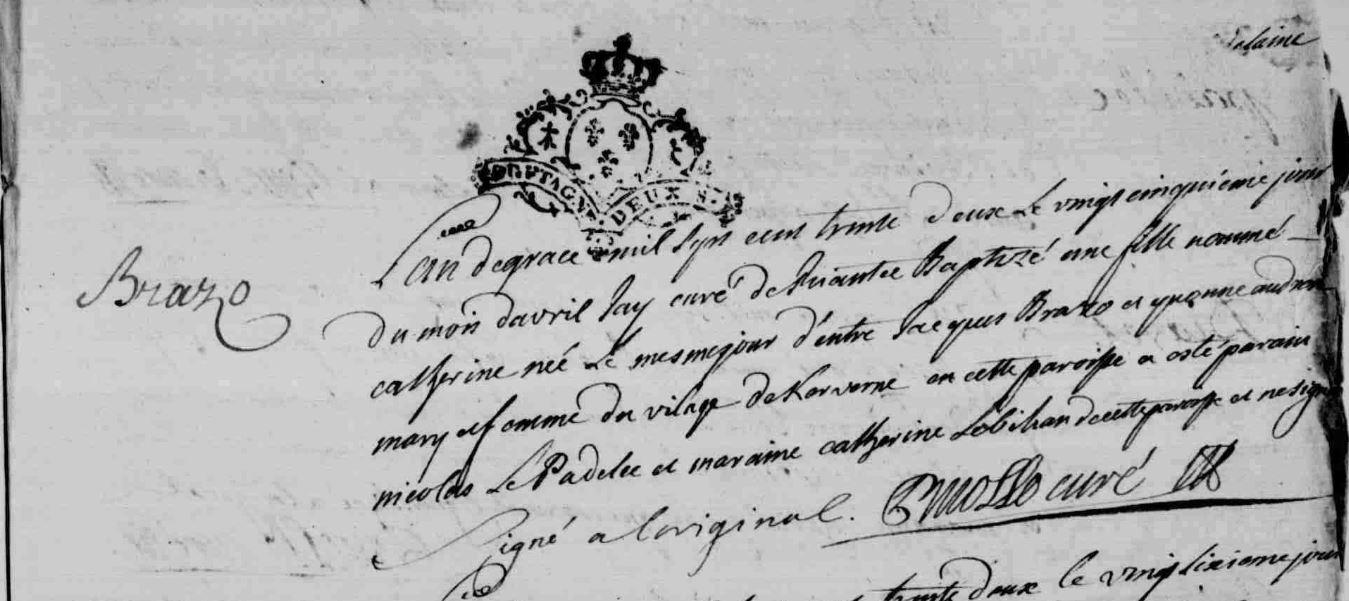 alaine
BRETAGNE DEUX S.
Brazo
L'an de grace mil sept cent trente deux Le vingt cinquieme jour
du mois d'avril Jay curé de Baptizé une fille nommé
catherine née Le mesme jour d'entre Jacques Brazo et yvonne
mary et femme du vilage de Kerverne en cette paroisse a esté parain
nicolas Le Padelec et maraine catherine Le bihan de cette paroisse et ne signe
Signé a l'original. curé
trente deux le vingt sixieme jour